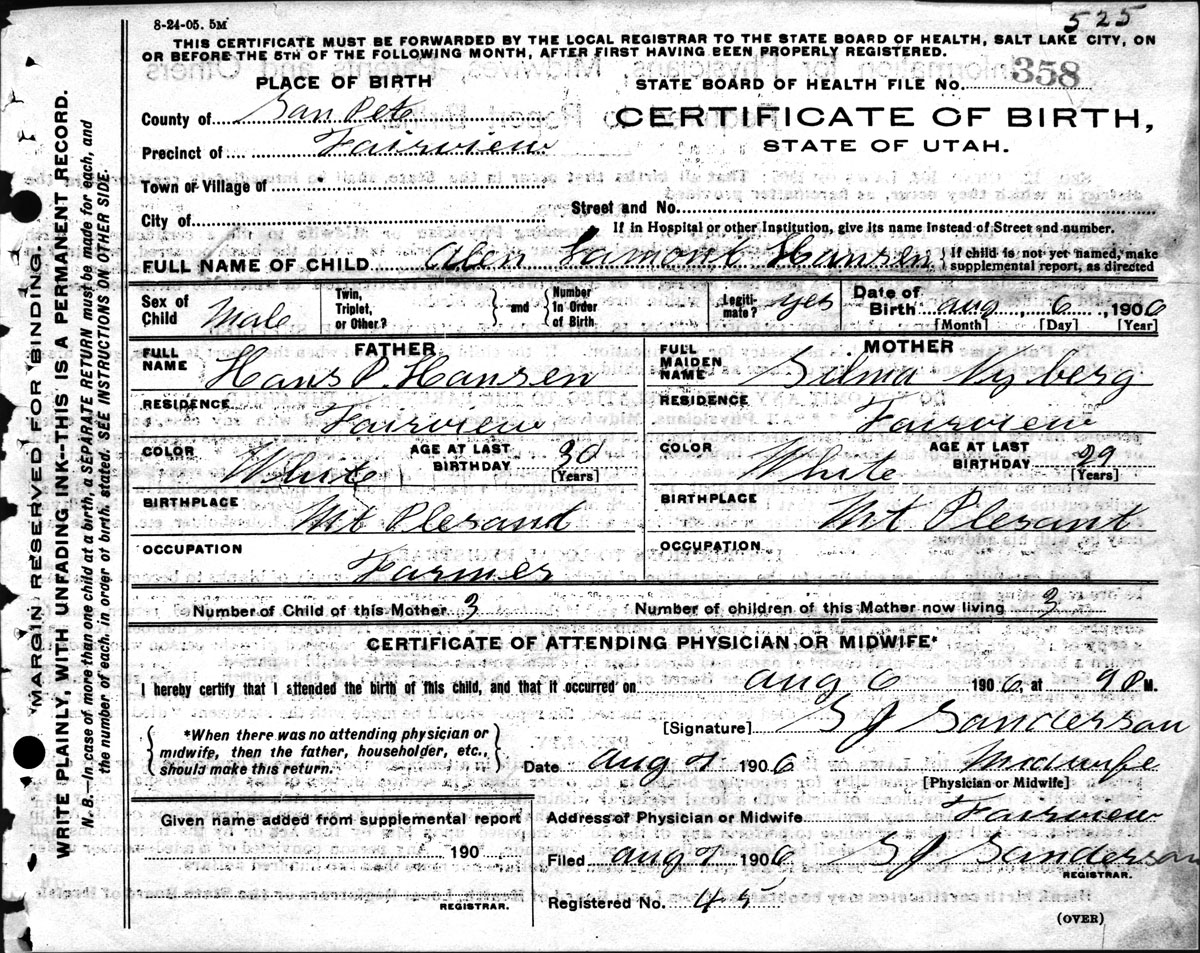 8-24-05. 5M
525
THIS CERTIFICATE MUST BE FORWARDED BY THE LOCAL REGISTRAR TO THE STATE BOARD OF HEALTH, SALT LAKE CITY, ON
OR BEFORE THE 5TH OF THE FOLLOWING MONTH, AFTER FIRST HAVING BEEN PROPERLY REGISTERED.
PLACE OF BIRTH
STATE BOARD OF HEALTH FILE NO. 358
County of San Pete
CERTIFICATE OF BIRTH,
Precinct of Fairview
STATE OF UTAH.
Town or Village of
Street and No.
City of
If in Hospital or other Institution, give its name instead of Street and number.
FULL NAME OF CHILD Alen Lamont Hansen } If child is not yet named, make supplemental report, as directed
Sex of Child Male Twin, Triplet, or Other? } and { Number In Order of Birth Legiti-mate? yes Date of Birth aug 6, 1906
[Month] [Day] [Year]
FATHER
MOTHER
FULL NAME Hans P. Hansen
FULL MAIDEN NAME Silma Nyberg
RESIDENCE Fairview
RESIDENCE Fairview
COLOR White AGE AT LAST BIRTHDAY 30 [Years]
COLOR White AGE AT LAST BIRTHDAY 29 [Years]
BIRTHPLACE Mt Plesand
BIRTHPLACE Mt Plesant
OCCUPATION Farmer
OCCUPATION
Number of Child of this Mother 3
Number of children of this Mother now living 3
CERTIFICATE OF ATTENDING PHYSICIAN OR MIDWIFE*
I hereby certify that I attended the birth of this child, and that it occurred on aug 6 1906, at 9 P M.
*When there was no attending physician or
midwife, then the father, householder, etc.,
should make this return.
[Signature] S J Sanderson
Date aug 1906 Midwife
[Physician or Midwife]
Given name added from supplemental report
190
REGISTRAR.
Address of Physician or Midwife Fairview
Filed aug 1906 S J Sanderson
REGISTRAR.
Registered No. 45
(OVER)
MARGIN RESERVED FOR BINDING.
WRITE PLAINLY, WITH UNFADING INK---THIS IS A PERMANENT RECORD.
N. B.—In case of more than one child at a birth, a SEPARATE RETURN must be made for each, and
the number of each, in order of birth, stated. SEE INSTRUCTIONS ON OTHER SIDE.